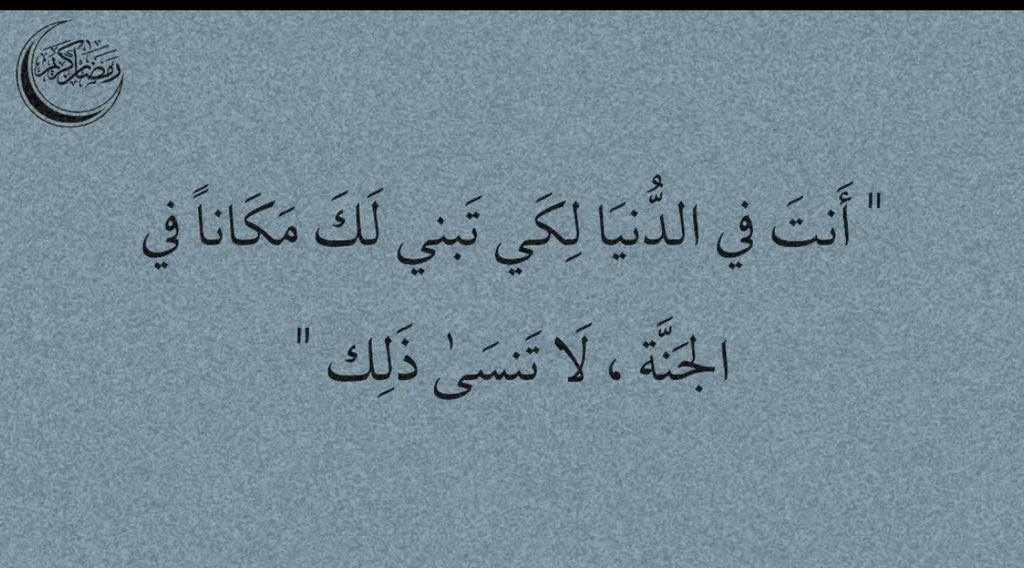 رمضان كريم
" أَنتَ في الدُّنيَا لِكَي تَبني لَكَ مَكَاناً في
الجَنَّة ، لَا تَنسَىٰ ذَلِك "